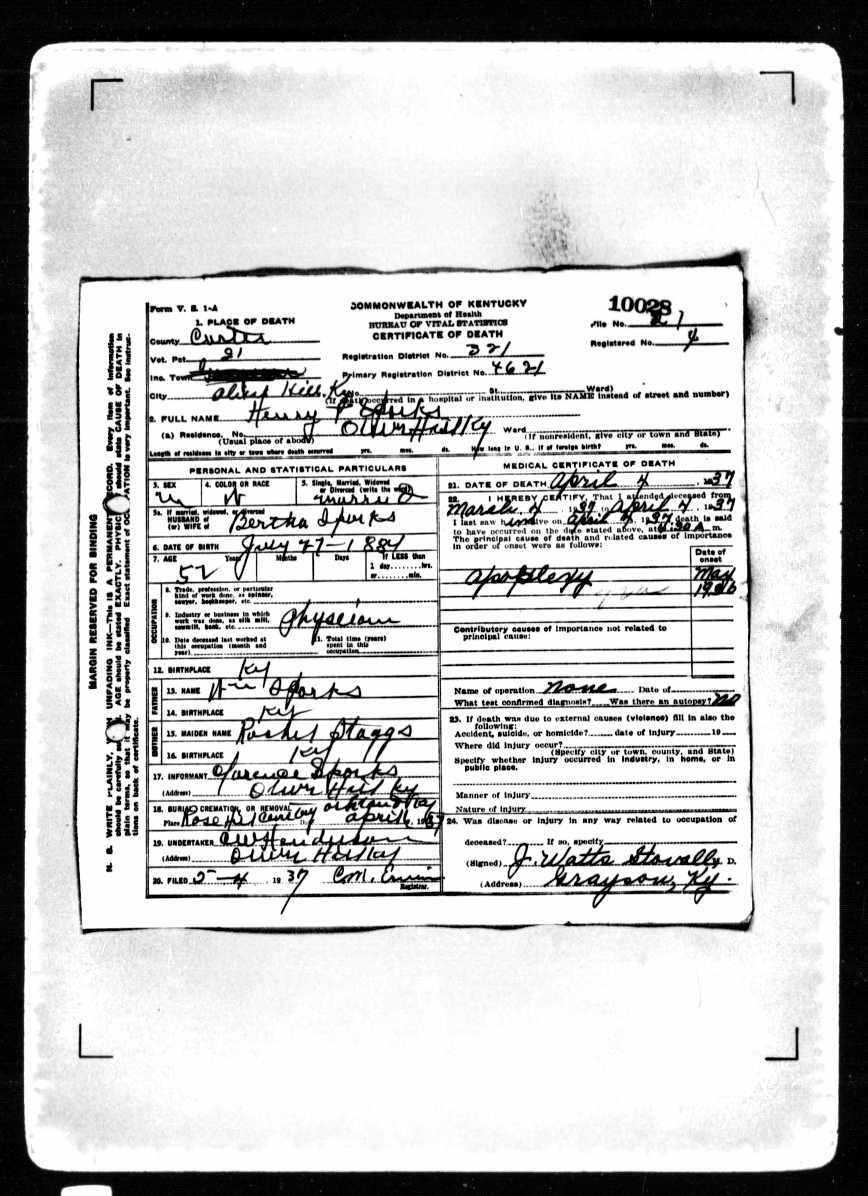 Form V. S. 1-A
COMMONWEALTH OF KENTUCKY
Department of Health
BUREAU OF VITAL STATISTICS
CERTIFICATE OF DEATH
10028
File No. 21
Registered No. 4
1. PLACE OF DEATH
County Carter
Vot. Pct. 21
Registration District No. 321
Inc. Town
Primary Registration District No. 4621
City Olive Hill, Ky No. St. Ward)
(If death occurred in a hospital or institution, give its NAME instead of street and number)
2. FULL NAME Henry P Sparks
(a) Residence. No. Olive Hill Ky Ward
(Usual place of abode) (If nonresident, give city or town and State)
Length of residence in city or town where death occurred yrs. mos. ds. How long in U. S., if of foreign birth? yrs. mos. ds.
PERSONAL AND STATISTICAL PARTICULARS
3. SEX M
4. COLOR OR RACE W
5. Single, Married, Widowed or Divorced (write the word) married
5a. If married, widowed, or divorced
HUSBAND of
(or) WIFE of Bertha Sparks
6. DATE OF BIRTH July 27-1884
7. AGE Years 52 Months Days If LESS than
1 day........hrs.
or........min.
OCCUPATION
8. Trade, profession, or particular
kind of work done, as spinner,
sawyer, bookkeeper, etc.
9. Industry or business in which
work was done, as silk mill,
sawmill, bank, etc. Physician
10. Date deceased last worked at
this occupation (month and
year)
11. Total time (years)
spent in this
occupation
12. BIRTHPLACE Ky
FATHER
13. NAME Wm Sparks
14. BIRTHPLACE Ky
MOTHER
15. MAIDEN NAME Rachel Staggs
16. BIRTHPLACE Ky
17. INFORMANT Clarence Sparks
(Address) Olive Hill Ky
18. BURIAL, CREMATION, OR REMOVAL Ashland Ky
Place Rose Hill Cemetery Date April 6, 1937
19. UNDERTAKER CW Henderson
(Address) Olive Hill Ky
20. FILED 5-4 1937 C.M. Erwin
Registrar.
MEDICAL CERTIFICATE OF DEATH
21. DATE OF DEATH April 4, 1937
22. I HEREBY CERTIFY, That I attended deceased from
March 4, 1937, to April 4, 1937
I last saw him alive on April 4, 1937 death is said
to have occurred on the date stated above, at 6:30 A m.
The principal cause of death and related causes of importance
in order of onset were as follows:
Date of
onset
apoplexy May
1936
Contributory causes of importance not related to
principal cause:
Name of operation none Date of
What test confirmed diagnosis? Was there an autopsy? no
23. If death was due to external causes (violence) fill in also the
following:
Accident, suicide, or homicide? date of injury 19
Where did injury occur?
(Specify city or town, county, and State)
Specify whether injury occurred in industry, in home, or in
public place.
Manner of injury
Nature of injury
24. Was disease or injury in any way related to occupation of
deceased? If so, specify
(Signed) J. Watts Stovall M. D.
(Address) Grayson, Ky.
MARGIN RESERVED FOR BINDING
N. B. WRITE PLAINLY, WITH UNFADING INK—THIS IS A PERMANENT RECORD. Every item of information
should be carefully supplied. AGE should be stated EXACTLY. PHYSICIANS should state CAUSE OF DEATH in
plain terms, so that it may be properly classified. Exact statement of OCCUPATION is very important. See instruc-
tions on back of certificate.